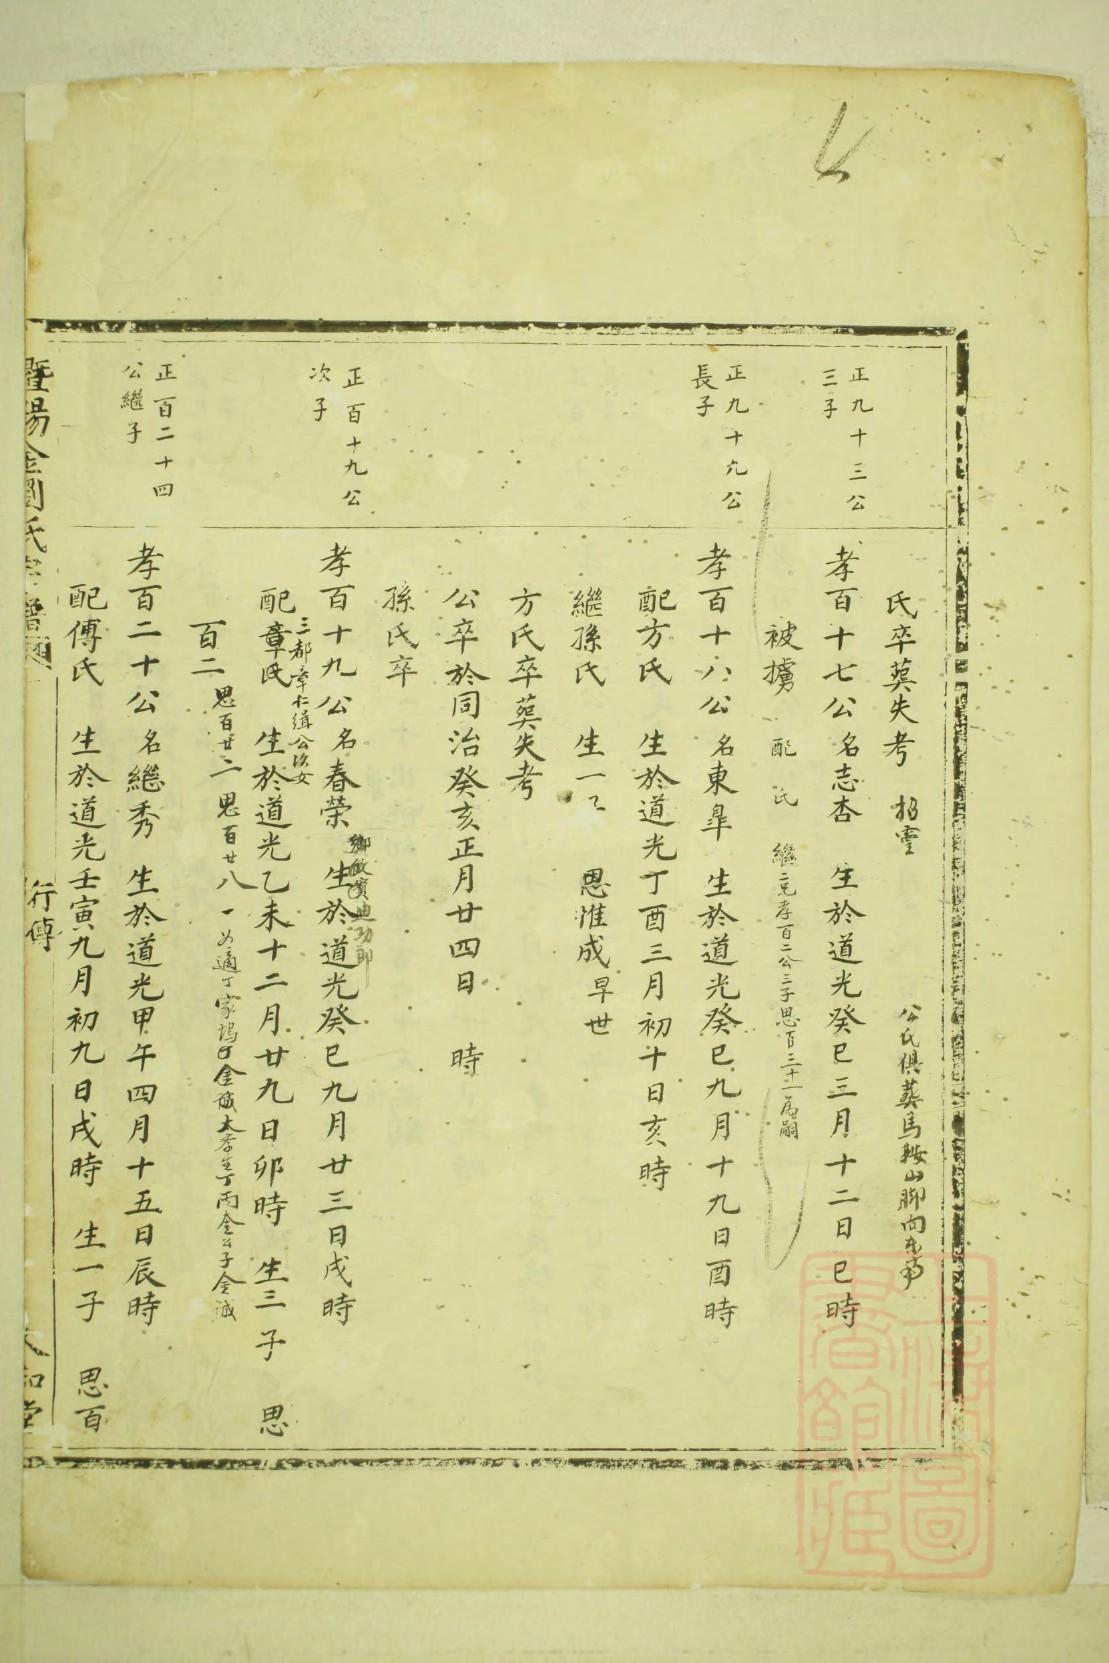 氏卒葖失考 招靈 公氏俱葖馬鞍山脚向
正九十三公
三子
孝百十七公 名志杏 生於道光癸巳三月十二日巳時
被擄 配 氏 繼二兄孝百二公三子思百三十一為嗣
正九十九公
長子
孝百十八公 名東皐 生於道光癸巳九月十九日酉時
配方氏 生於道光丁酉三月初十日亥時
繼孫氏 生一子 思惟成早世
方氏卒葖失考
公卒於同治癸亥正月廿四日 時
孫氏卒
正百十九公
次子
孝百十九公 名春榮 生於道光癸巳九月廿三日戌時
鄉飲賓迪功郎
三都章仁緝公次女
配章氏 生於道光乙未十二月廿九日卯時 生三子 思
百二 思百廿二 思百廿八 一女適丁家塢
正百二十四
公繼子
孝百二十公 名繼秀 生於道光甲午四月十五日辰時
配傅氏 生於道光壬寅九月初九日戌時 生一子 思百
暨陽金劉氏宗譜
行傳